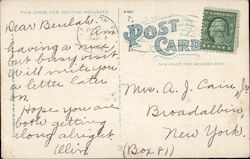 THIS SPACE FOR WRITING MESSAGES
POST CARD
THIS SPACE FOR ADDRESS ONLY
Dear Beulah: Am
having a nice
but busy visit.
Will write you
a letter later
on.
Hope you are
both getting
along alright
Mrs. A. J. Cain, Jr.
Broadalbin,
New York.
(Box 811)